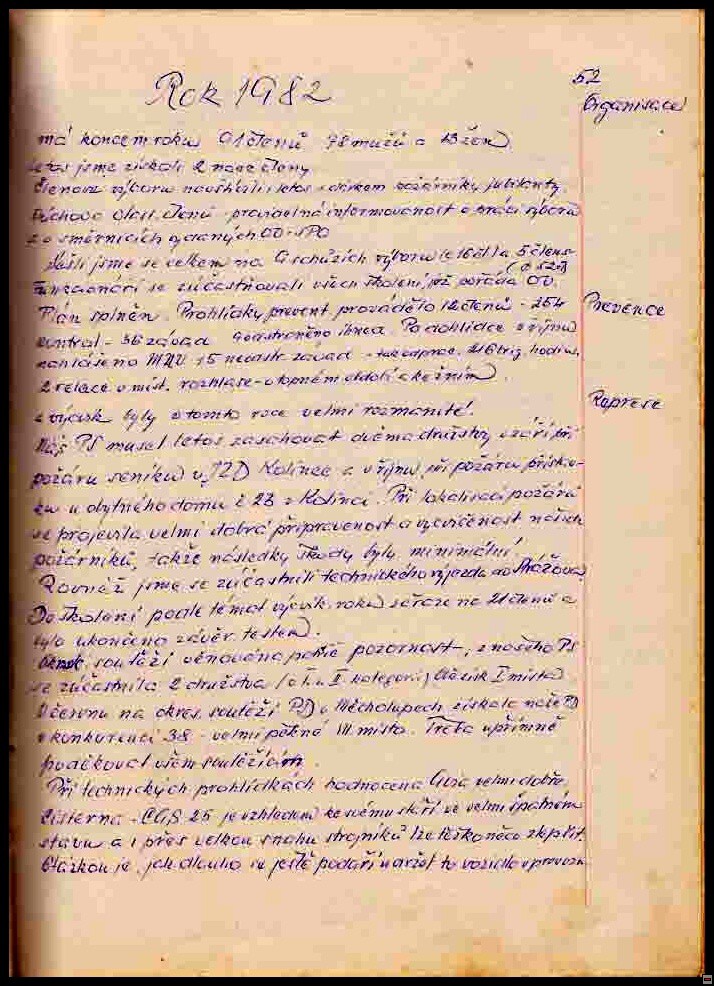 52
Rok 1982
Organisace
má koncem roku 91 členů 78 mužů a 13 žen.
Letos jsme získali 2 nové členy.
Členové výboru navštívili letos s dárkem požárníky jubilanty.
Výchova členů - pravidelná informovanost o práci výboru
a o směrnicích vydaných OV-SPO
Sešli jsme se celkem na schůzích výboru a 5 člens.
Funkcionáři se zúčastňovali všech školení, jež pořádá OV.
Plán splněn. Prohlídky prevent. provádělo 12 členů - 254
Prevence
kontrol - 36 závad odstraněno ihned. Po dohlídce v říjnu
nahlášeno MNV 15 neodstr. závad - odprac. 216 brig. hodin,
2 relace v míst. rozhlase - v topném období a ke žním.
Represe
a výcvik byly v tomto roce velmi rozmanité.
Náš PS musel letos zasahovat dvěma družstvy v září při
požáru seníku v JZD Kolinec a v říjnu při požáru přístav-
ku u obytného domu č 23 v Kolinci. Při lokalisaci požárů
se projevila velmi dobrá připravenost a vycvičenost našich
požárníků, takže následky škody byly minimální.
Rovněž jsme se zúčastnili technického výjezdu do Strážova
Doškolení podle témat výcvik. roku se 21 členů a
bylo ukončeno závěr. testem.
soutěží věnována patřič. pozornost, z našeho PS
se zúčastnila 2 družstva /v I. a II kategorii/ I místo.
V červnu na okres. soutěži PD v Měcholupech získalo naše PD
v konkurenci 38 - velmi pěkné III. místo. Třeba upřímně
poděkovat všem soutěžícím.
Při technických prohlídkách hodnocena velmi dobře.
Cisterna - CAS 25 je vzhledem ke svému stáří ve velmi špatném
stavu a i přes velkou snahu strojníků lze těžko něco zlepšit.
Otázkou je, jak dlouho se ještě podaří udržet to vozidlo v provozu